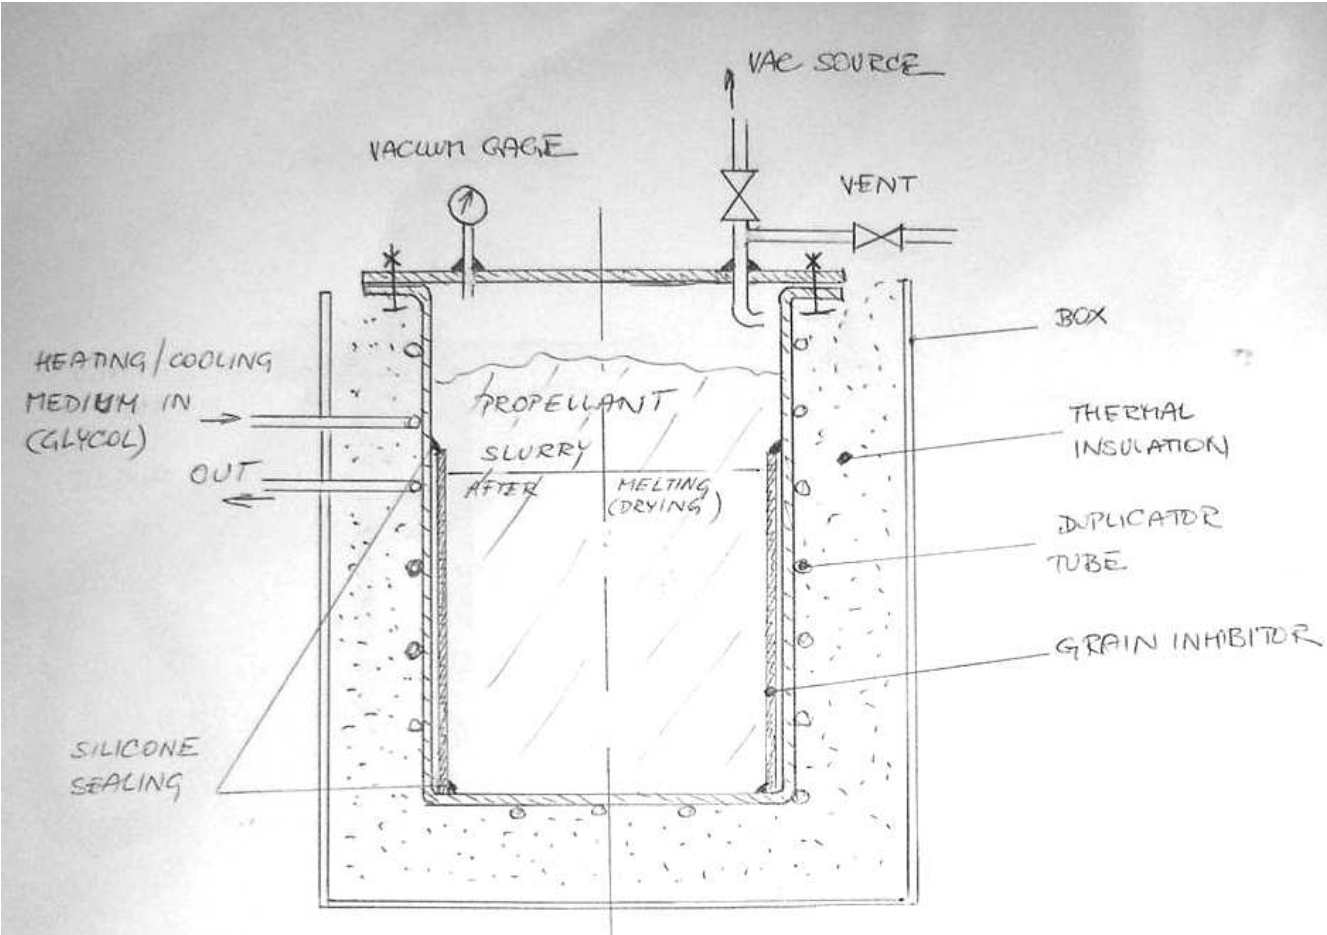 VAC SOURCE
VACUUM GAGE
VENT
BOX
HEATING/COOLING
MEDIUM IN
(GLYCOL)
OUT
PROPELLANT
SLURRY
AFTER MELTING
(DRYING)
THERMAL
INSULATION
DUPLICATOR
TUBE
GRAIN INHIBITOR
SILICONE
SEALING